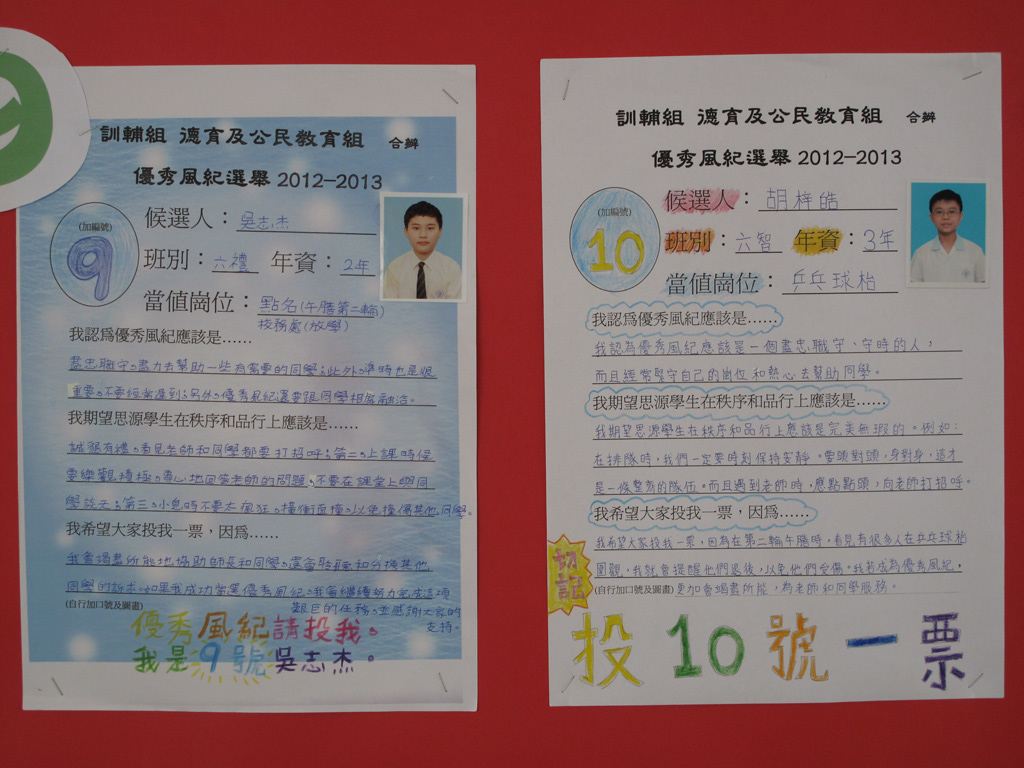 訓輔組 德育及公民教育組 合辦
優秀風紀選舉 2012–2013
(加編號)
9
候選人：吳志杰
班別：六禮 年資：2年
當值崗位：點名(午膳第二輪)
校務處(放學)
我認爲優秀風紀應該是......
盡忠職守，盡力去幫助一些有需要的同學；此外，準時也是很
重要，不要經常遲到；另外，優秀風紀還要跟同學相處融洽。
我期望思源學生在秩序和品行上應該是......
誠懇有禮，看見老師和同學都要打招呼；第二，上課時候
要樂觀積極，專心地回答老師的問題，不要在課堂上與同
學談天；第三，小息時不要太瘋狂，橫衝直撞，以免撞傷其他同學。
我希望大家投我一票，因爲......
我會竭盡所能地協助師長和同學，還會聆聽和分擔其他
同學的訴求。如果我成功當選優秀風紀，我會繼續努力完成這項
(自行加口號及圖畫)
艱巨的任務，並感謝大家的
支持。
優秀風紀請投我。
我是9號吳志杰。
訓輔組 德育及公民教育組 合辦
優秀風紀選舉 2012–2013
(加編號)
10
候選人：胡梓皓
班別：六智 年資：3年
當值崗位：乒乓球枱
我認爲優秀風紀應該是......
我認為優秀風紀應該是一個盡忠職守、守時的人，
而且經常堅守自己的崗位和熱心去幫助同學。
我期望思源學生在秩序和品行上應該是......
我期望思源學生在秩序和品行上應該是完美無瑕的。例如：
在排隊時，我們一定要時刻保持安靜。要眼對頭，身對身，這才
是一條整齊的隊伍。而且遇到老師時，應點點頭，向老師打招呼。
我希望大家投我一票，因爲......
我希望大家投我一票，因為在第二輪午膳時，看見有很多人在乒乓球枱
圍觀，我就會提醒他們退後，以免他們受傷。我若成為優秀風紀，
(自行加口號及圖畫) 更加會竭盡所能，為老師和同學服務。
切記
投10號一票